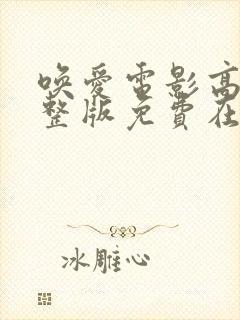 唤爱电影高
整版免费在
冰雕心